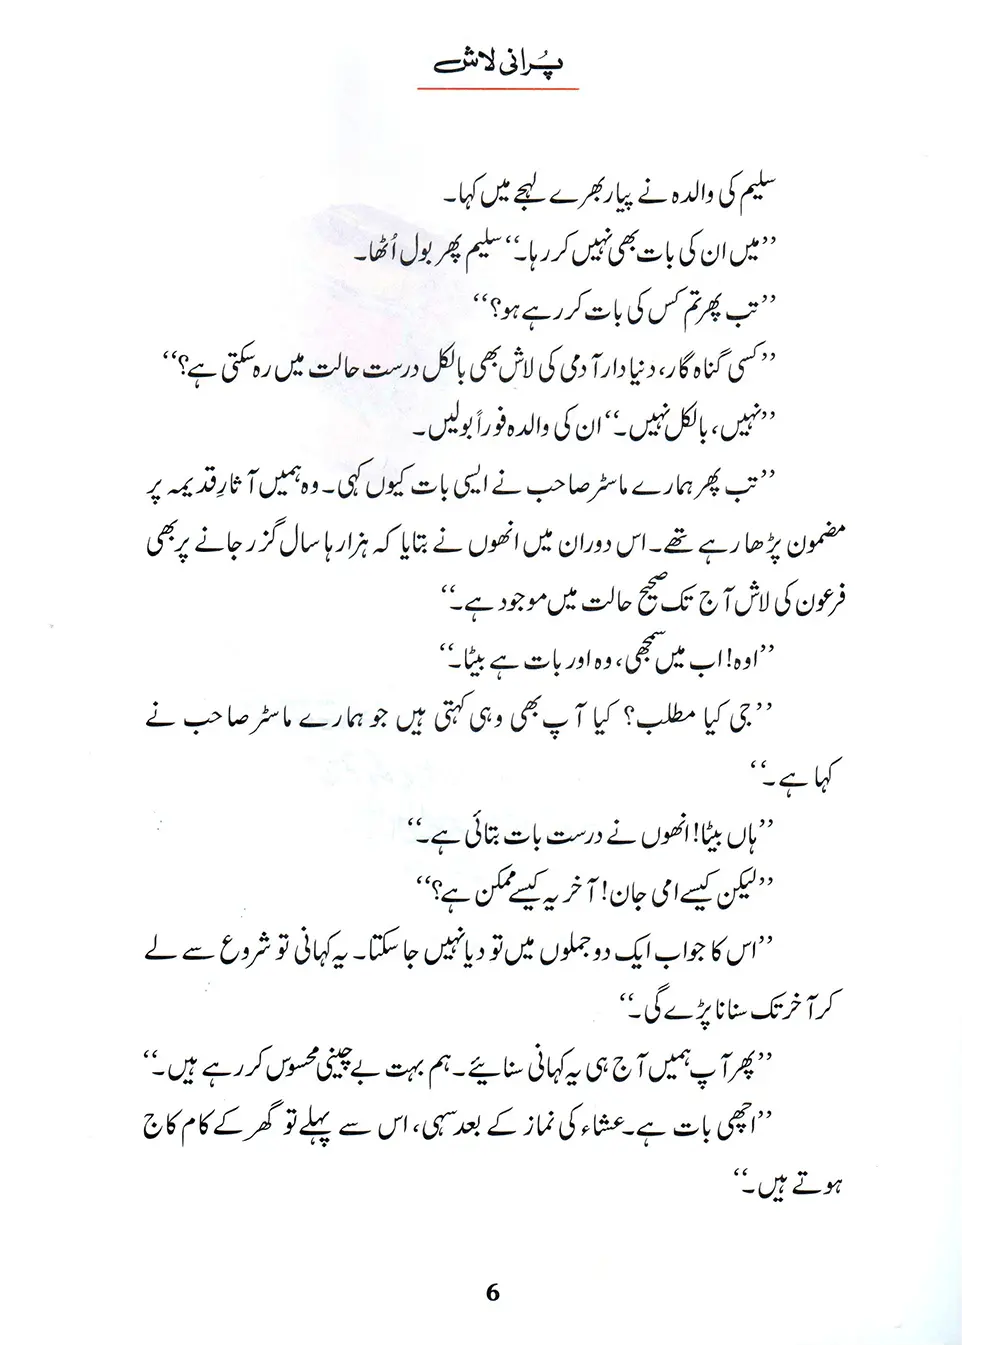 پُرانی لاش
سلیم کی والدہ نے پیار بھرے لہجے میں کہا۔
’’میں ان کی بات بھی نہیں کر رہا۔‘‘ سلیم پھر بول اُٹھا۔
’’تب پھر تم کس کی بات کر رہے ہو؟‘‘
’’کسی گناہ گار، دنیا دار آدمی کی لاش بھی بالکل درست حالت میں رہ سکتی ہے؟‘‘
’’نہیں، بالکل نہیں۔‘‘ ان کی والدہ فوراً بولیں۔
’’تب پھر ہمارے ماسٹر صاحب نے ایسی بات کیوں کہی۔ وہ ہمیں آثارِ قدیمہ پر
مضمون پڑھا رہے تھے۔ اس دوران میں انھوں نے بتایا کہ ہزار ہا سال گزر جانے پر بھی
فرعون کی لاش آج تک صحیح حالت میں موجود ہے۔‘‘
’’اوہ! اب میں سمجھی، وہ اور بات ہے بیٹا۔‘‘
’’جی کیا مطلب؟ کیا آپ بھی وہی کہتی ہیں جو ہمارے ماسٹر صاحب نے
کہا ہے۔‘‘
’’ہاں بیٹا! انھوں نے درست بات بتائی ہے۔‘‘
’’لیکن کیسے امی جان! آخر یہ کیسے ممکن ہے؟‘‘
’’اس کا جواب ایک دو جملوں میں تو دیا نہیں جا سکتا۔ یہ کہانی تو شروع سے لے
کر آخر تک سنانا پڑے گی۔‘‘
’’پھر آپ ہمیں آج ہی یہ کہانی سنائیے۔ ہم بہت بے چینی محسوس کر رہے ہیں۔‘‘
’’اچھی بات ہے۔ عشاء کی نماز کے بعد سہی، اس سے پہلے تو گھر کے کام کاج
ہوتے ہیں۔‘‘
6